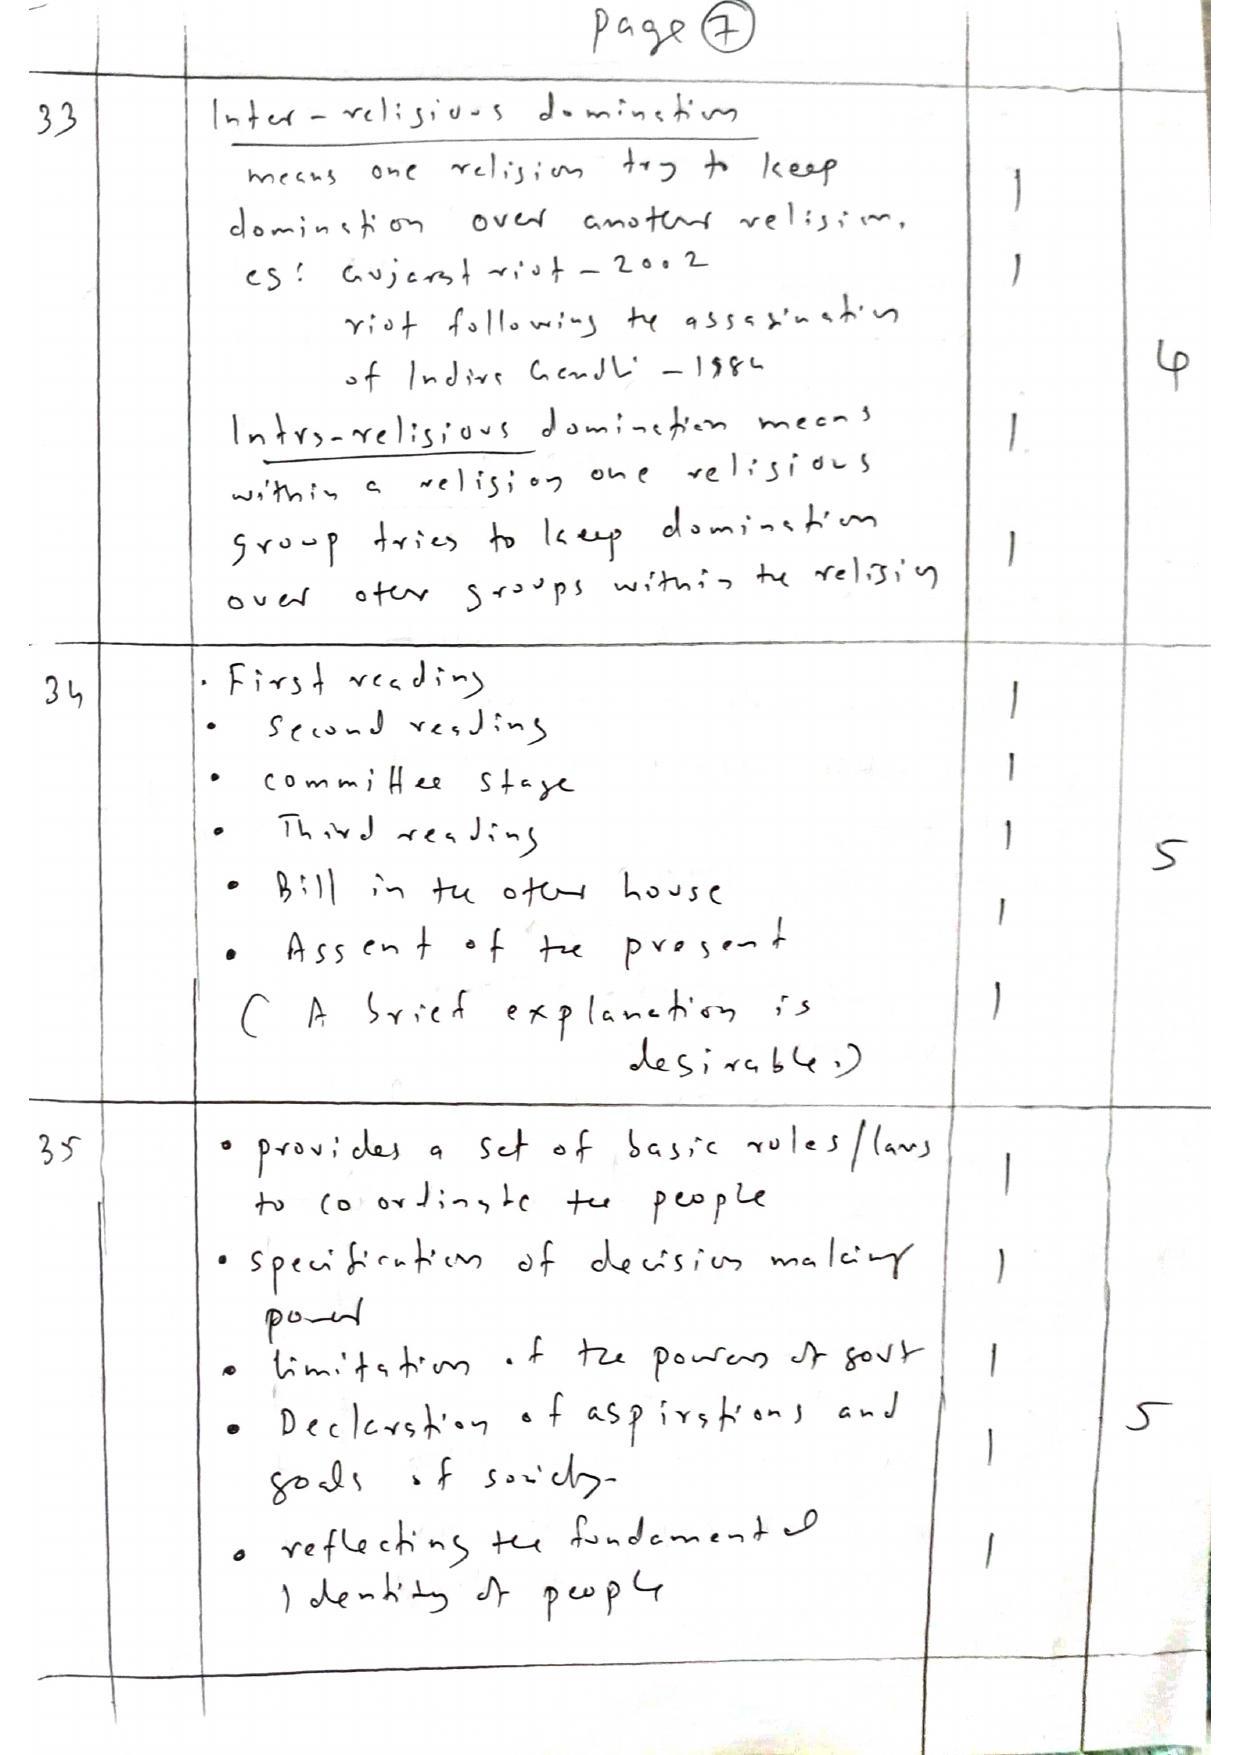 Page 7
33
Inter-religious domination
means one religion try to keep
domination over another religion.
eg: Gujarat riot - 2002
riot following the assasination
of Indira Gandhi - 1984
Intra-religious domination means
within a religion one religious
group tries to keep domination
over other groups within the religion
1
1
1
1
4
34
• First reading
• Second reading
• committee stage
• Third reading
• Bill in the other house
• Assent of the present
( A brief explanation is
desirable.)
1
1
1
1
1
5
35
• provides a set of basic rules/laws
to coordinate the people
• specification of decision making
power
• limitation of the powers of govt
• Declaration of aspirations and
goals of society
• reflecting the fundamental
Identity of people
1
1
1
1
1
5